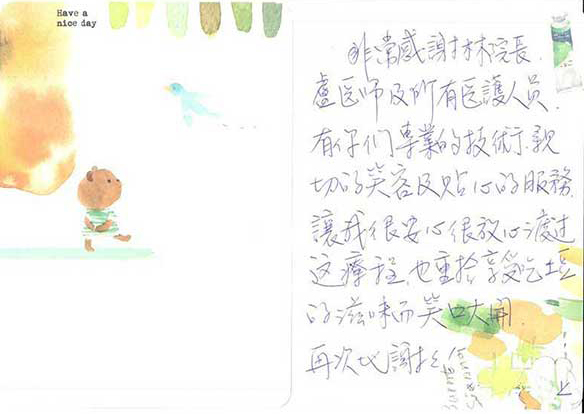 Have a
nice day
非常感謝林院長
盧医师及所有医護人员
有你们專業的技術、親
切的笑容及贴心的服務
讓我很安心很放心渡过
这療程,也重拾享受吃
的滋味而笑口大開
再次地謝谢